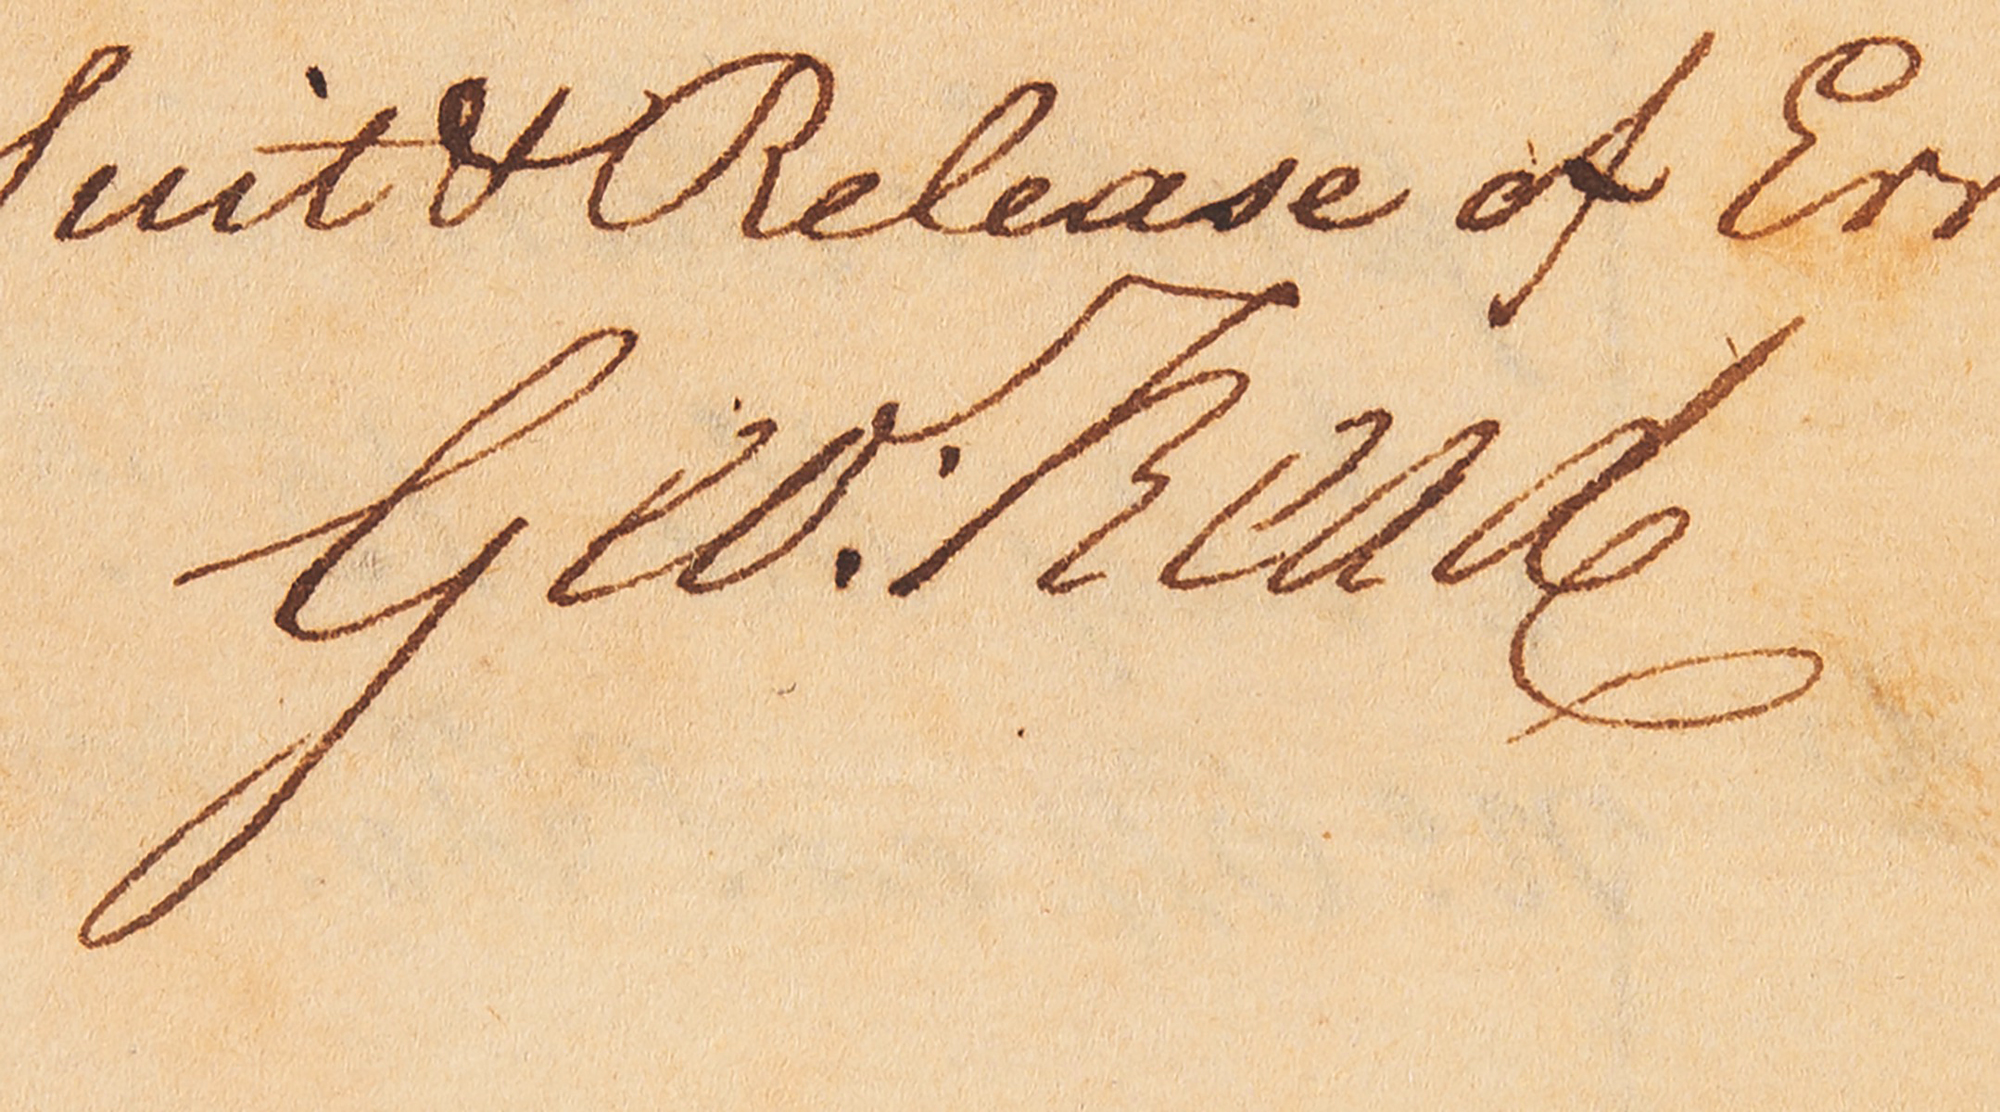 Suit & Release of Err
Geo: Read